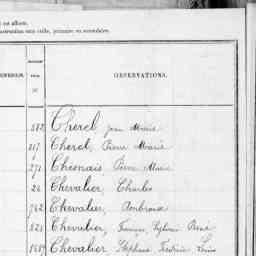 est affecte.
instruction sera celle, primaire ou secondaire.
OBSERVATIONS.
512 Cherel Jean Marie
217 Cherel, Pierre Marie
271 Chesnais Pierre Marie
26 Chevalier, Charles
742 Chevalier, Ambroise
521 Chevalier, François Sylvain René
1589 Chevalier, Stéphane Frédéric Louis